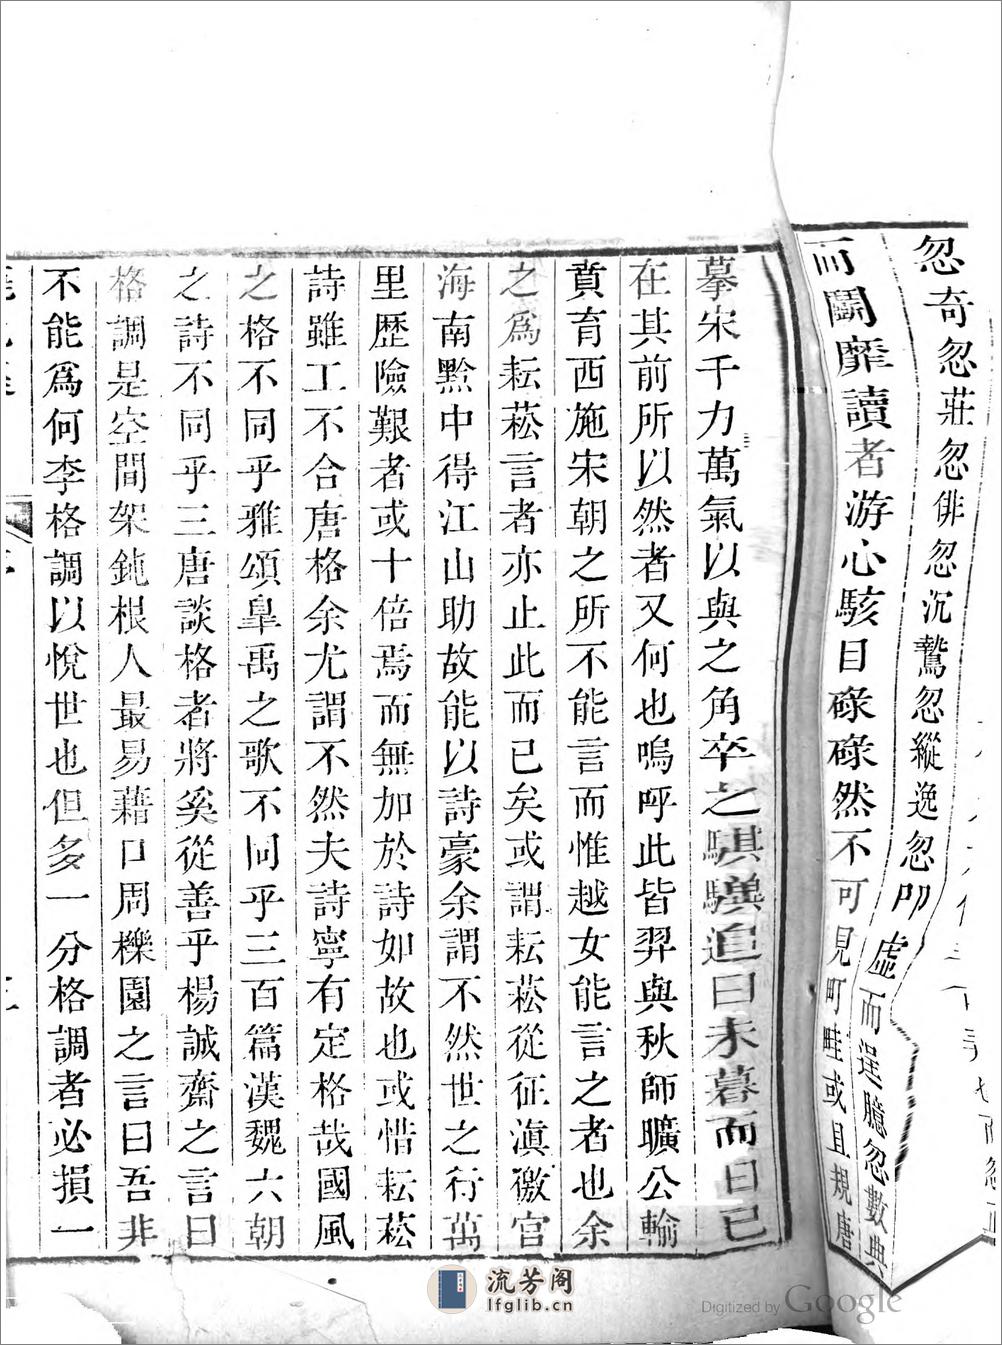 忽奇忽莊忽俳忽沉鷙忽縱逸忽叩虛而逞臆忽數典
而鬭靡讀者游心駭目碌碌然不可見町畦或且規唐
摹宋千力萬氣以與之角卒之騏驥追日未暮而日已
在其前所以然者又何也嗚呼此皆羿與秋師曠公輸
賁育西施宋朝之所不能言而惟越女能言之者也余
之為耘菘言者亦止此而已矣或謂耘菘從征滇徼宦
海南黔中得江山助故能以詩豪余謂不然世之行萬
里歷險艱者或十倍焉而無加於詩如故也或惜耘菘
詩雖工不合唐格余尤謂不然夫詩寧有定格哉國風
之格不同乎雅頌臯禹之歌不同乎三百篇漢魏六朝
之詩不同乎三唐談格者將奚從善乎楊誠齋之言曰
格調是空間架鈍根人最易藉口周櫟園之言曰吾非
不能為何李格調以悅世也但多一分格調者必損一
流芳阁
lfglib.cn
Digitized by Google